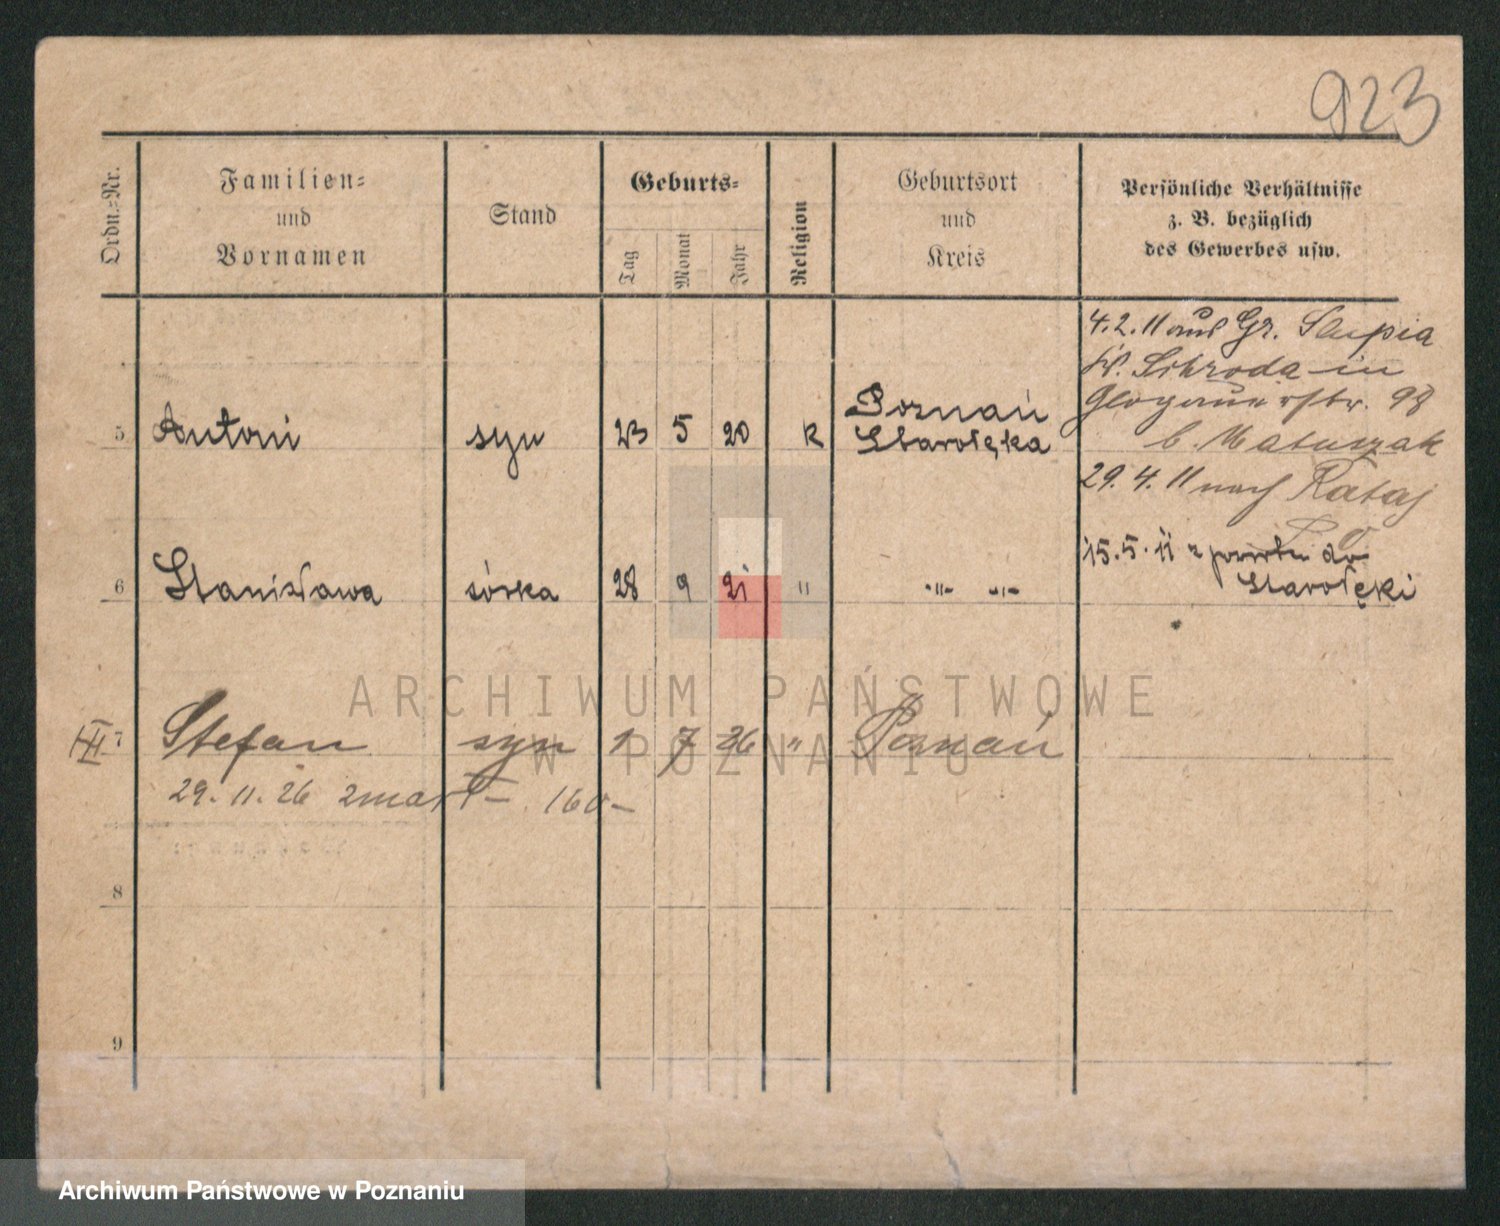 923
Ordn.-Nr.
Familien-
und
Vornamen
Stand
Geburts-
Tag
Monat
Jahr
Religion
Geburtsort
und
Kreis
Persönliche Verhältnisse
z. B. bezüglich
des Gewerbes usw.
4. 2. 11 aus Gr. Slupia
Kr. Schroda in
Glogauerstr. 98
b. Matuszak
29. 4. 11 nach Rataj
15. 5. 11 z powrotem do
Starołęki
5 Antoni syn 23 5 20 R Poznań
Starołęka
6 Stanisława córka 28 9 21 " -"- -"-
III 7 Stefan syn 1 7 26 " Poznań
29. 11. 26 zmarł 160
8
9
ARCHIWUM PAŃSTWOWE
W POZNANIU
Archiwum Państwowe w Poznaniu